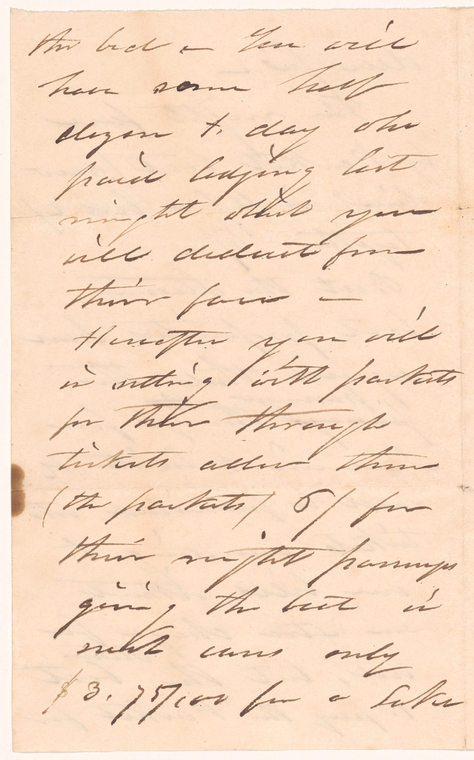 the bed – You will
have some half
dozen to day who
paid lodging last
night which you
will deduct from
their fare –
Hereafter you will
in settling with packets
for their through
tickets allow them
(the packets) 6/ for
their night passengers
giving the bed in
such cases only
$3.75/100 for a Lake